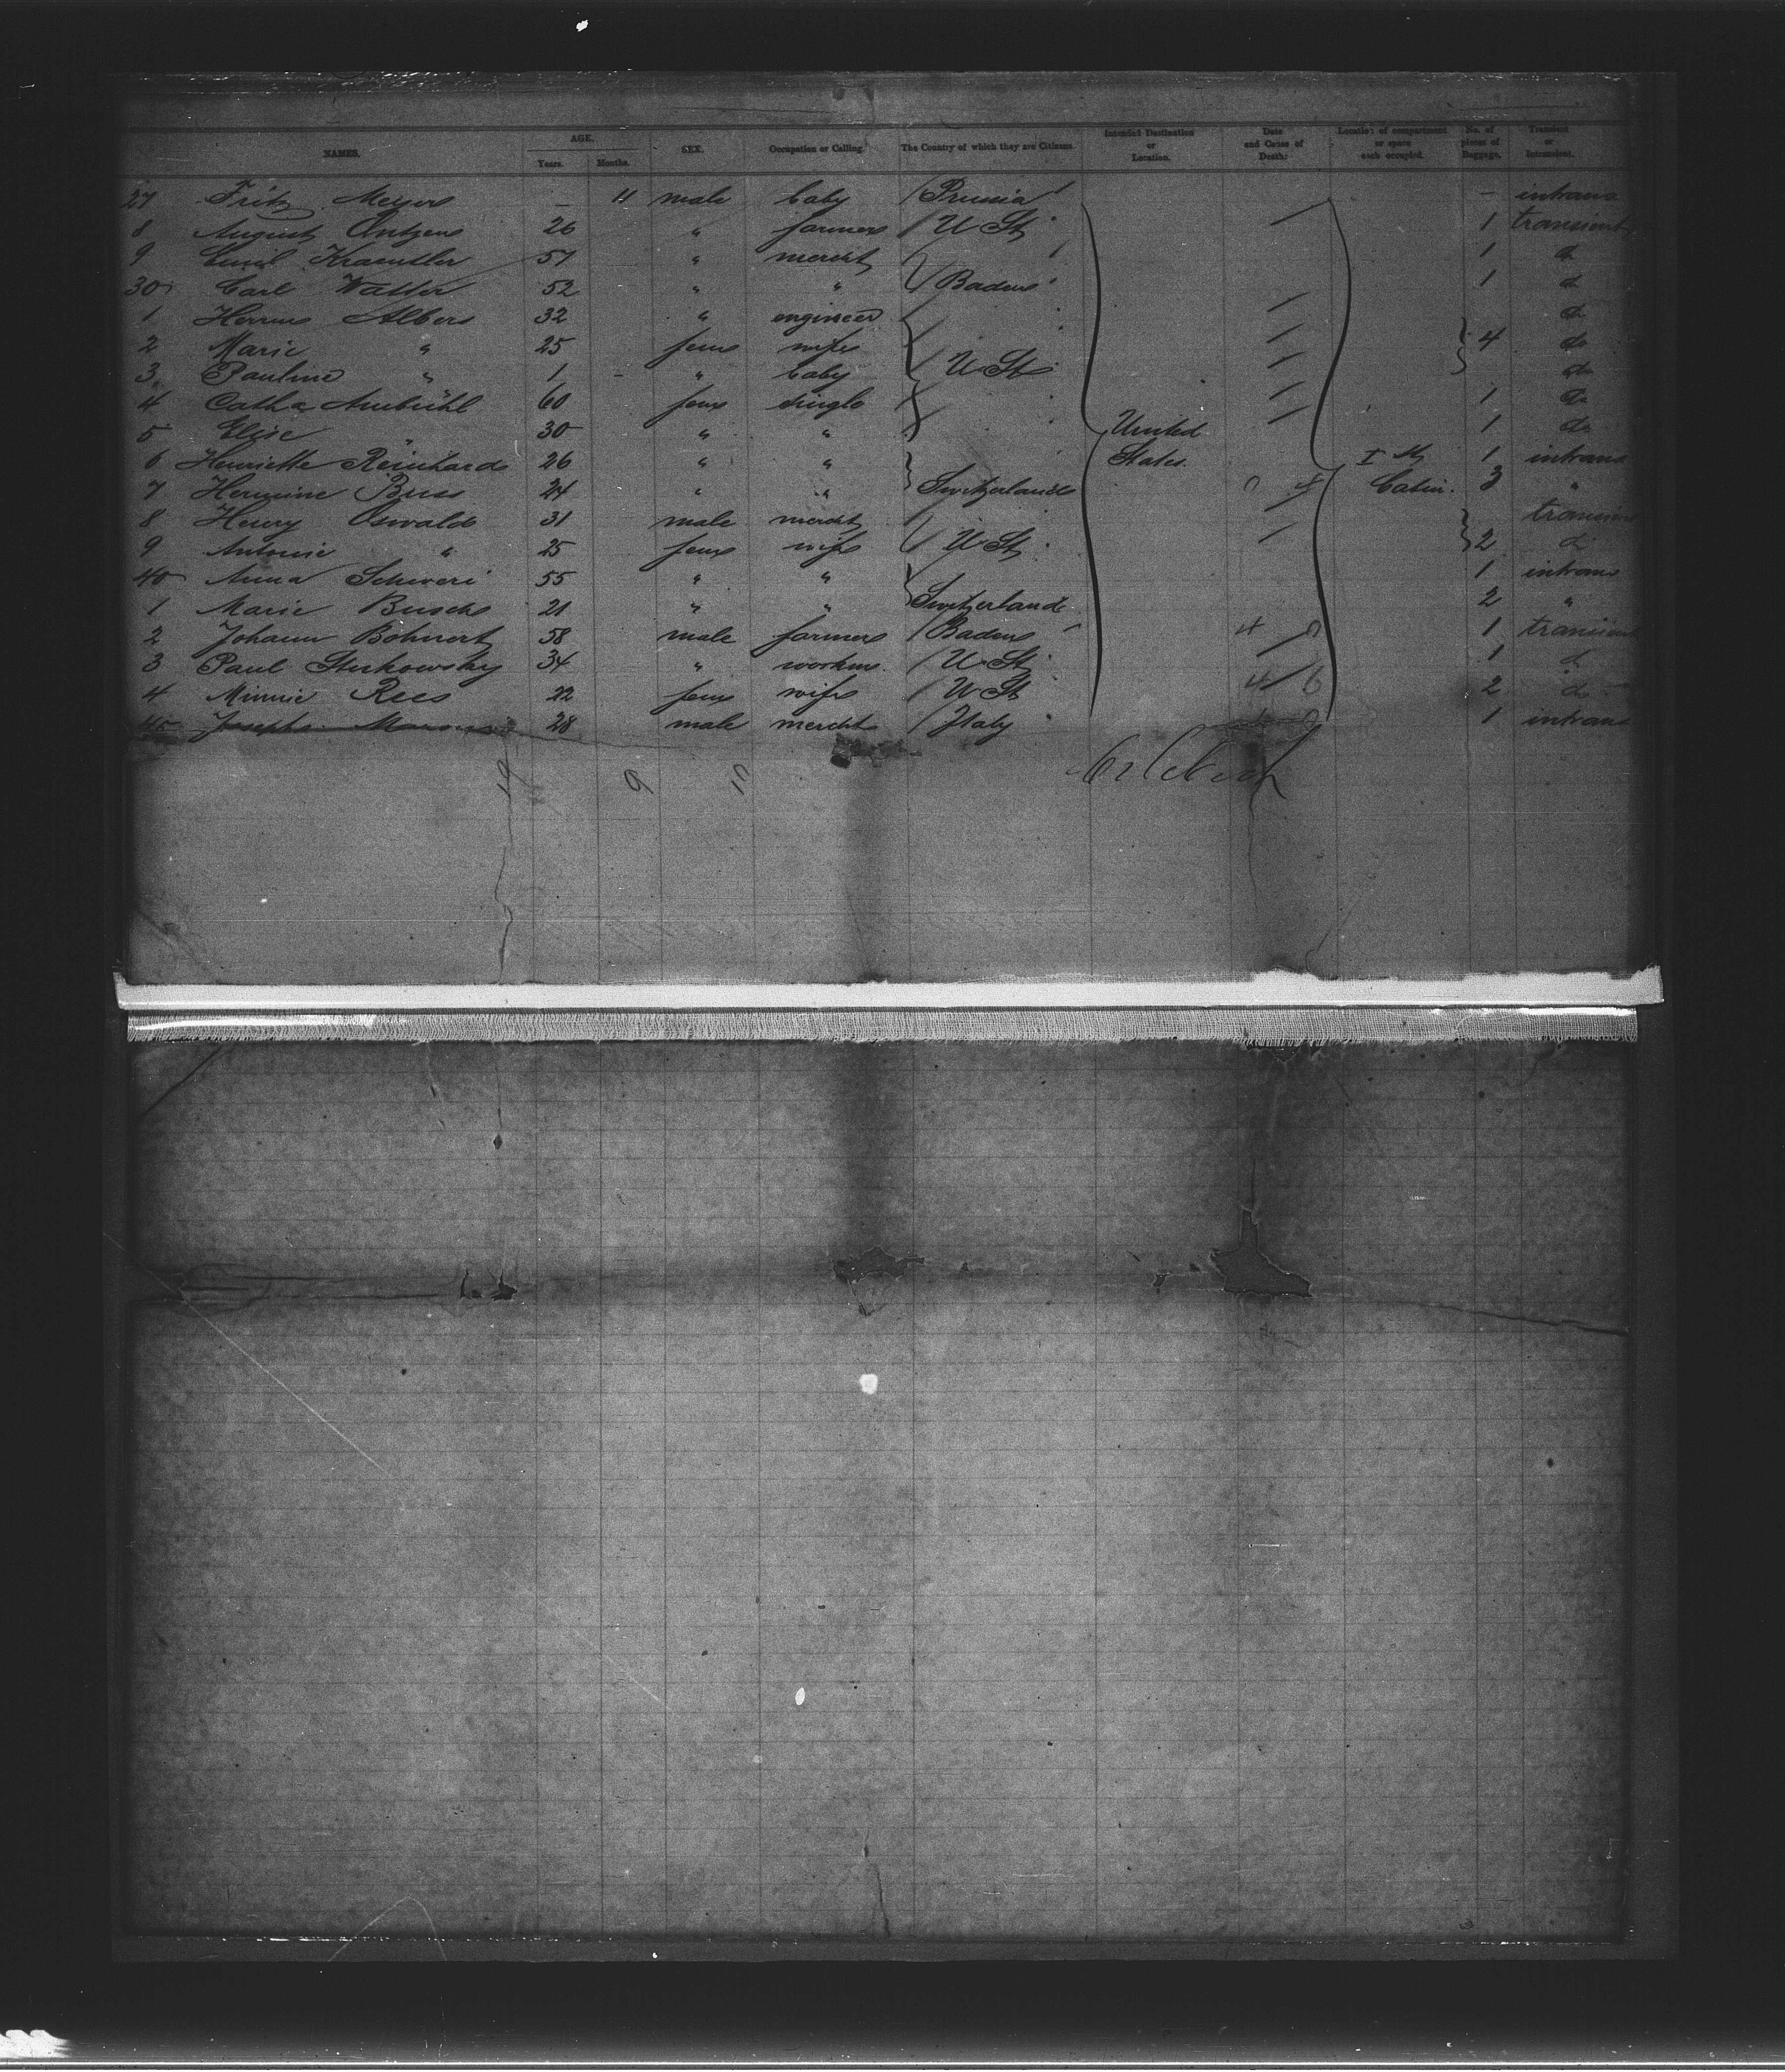 NAMES. AGE. Years. Months. SEX. Occupation or Calling. The Country of which they are Citizens. Intended Destination or Location. Date and Cause of Death: Location of compartment or space each occupied. No. of pieces of Baggage. Transient or Intransient.
27 Fritz Meyer — 11 male baby Prussia — intrans
8 August Ontzen 26 " farmer U St 1 transient
9 Emil Kraentler 51 " mercht 1 do
30 Carl Walter 52 " " Baden 1 do
1 Herm Albers 32 " engineer do
2 Marie " 25 fem wife 4 do
3 Pauline " 1 - " baby U St do
4 Catha Ambühl 60 fem single 1 do
5 Elise " 30 " " United 1 do
6 Henriette Reinhard 26 " " States. I st 1 intrans
7 Hermine Buss 24 " " Switzerland Cabin. 3 "
8 Henry Oswald 31 male mercht transient
9 Antonie " 25 fem wife U St 2 do
40 Anna Schweri 55 " " 1 intrans
1 Marie Busch 21 " " Switzerland 2 "
2 Johann Bohnert 58 male farmer Baden 1 transient
3 Paul 34 " workm. U St 1 do
4 Minnie Rees 22 fem wife U St 2 do
45 Joseph 28 male mercht Italy 1 intrans
19 9 10